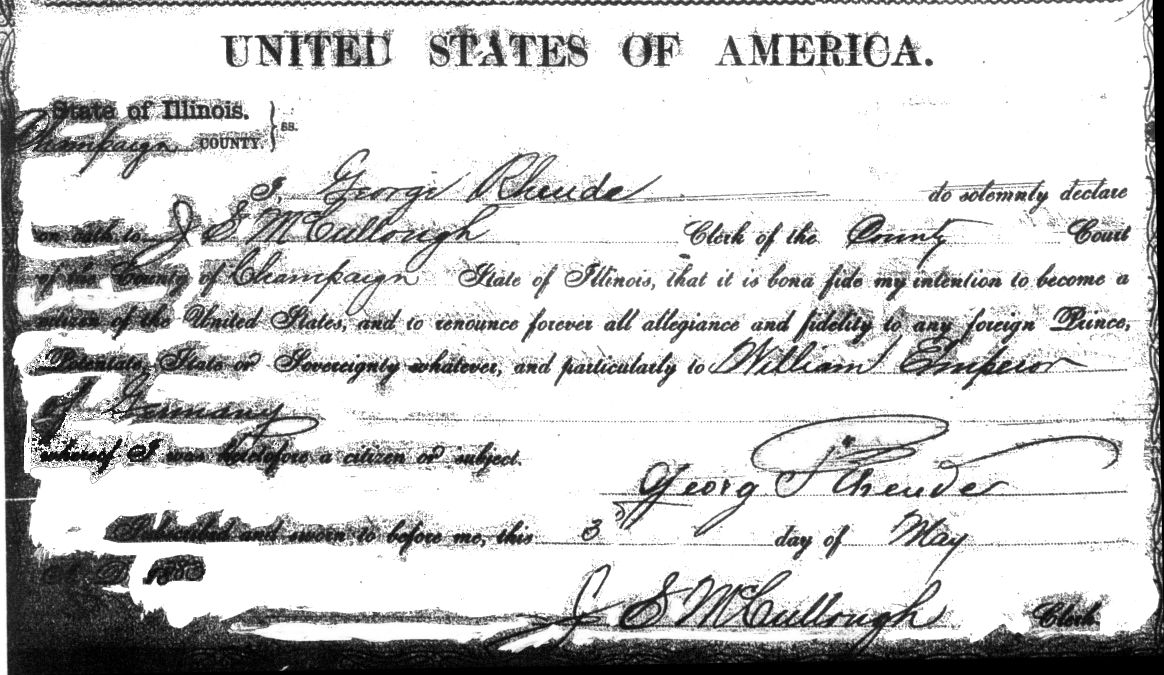 UNITED STATES OF AMERICA.
State of Illinois.
Champaign COUNTY. } ss.
I, George Rheude do solemnly declare
on oath to J S McCullough Clerk of the County Court
of the County of Champaign State of Illinois, that it is bona fide my intention to become a
citizen of the United States, and to renounce forever all allegiance and fidelity to any foreign Prince,
Potentate, State or Sovereignty whatever, and particularly to William Emperor
of Germany
whereof I was heretofore a citizen or subject.
Georg Rheude
Subscribed and sworn to before me, this 3 day of May
A. D. 188
J S McCullough Clerk